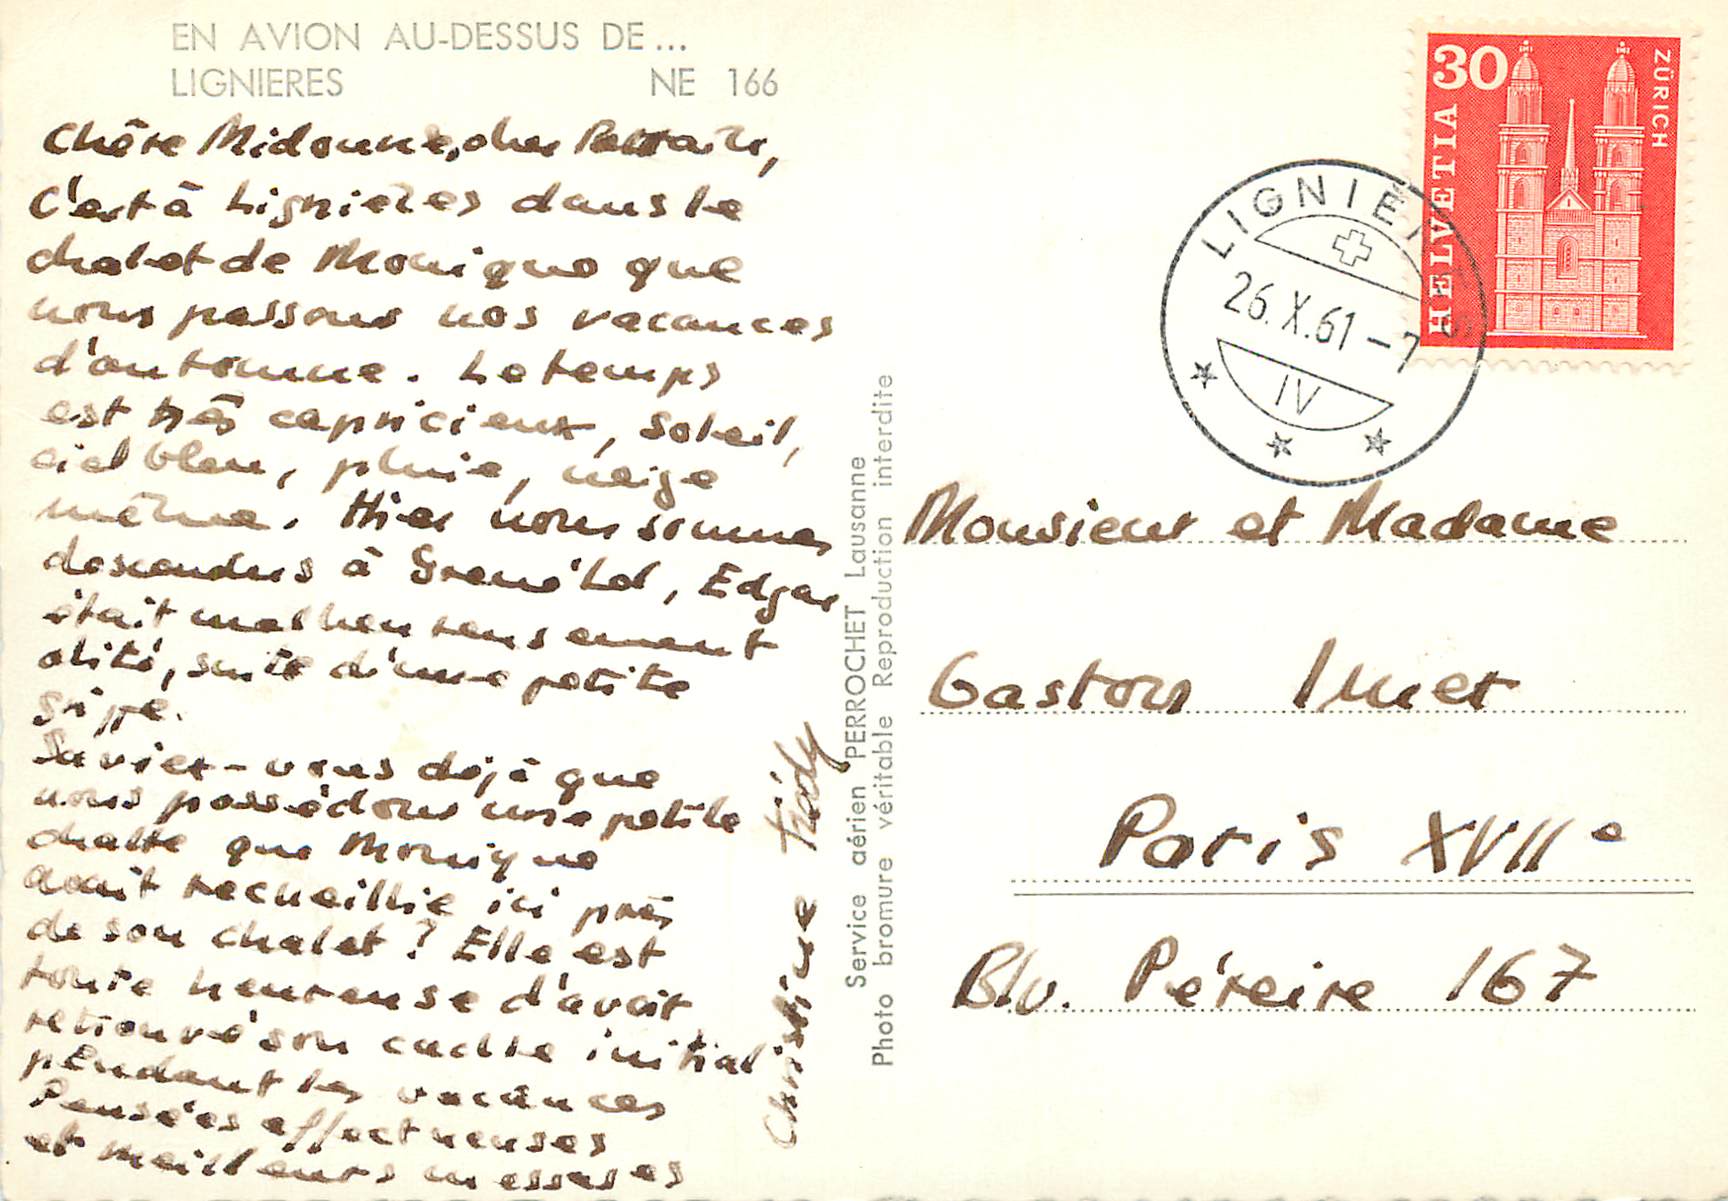 EN AVION AU-DESSUS DE...
LIGNIERES NE 166
Chère Midoune, cher Parrain,
C'est à Lignières dans le
chalet de Monique que
nous passons nos vacances
d'automne. Le temps
est très capricieux, soleil,
ciel bleu, pluie, neige
même. Hier nous sommes
descendus à , Edgar
était malheureusement
alité, suite d'une petite
grippe.
Saviez-vous déjà que
nous possédons une petite
chatte que Monique
avait recueillie ici près
de son chalet? Elle est
toute heureuse d'avoir
retrouvé son cadre initial
pendant les vacances
Pensées affectueuses
et meilleurs messages
Christiane
Service aérien PERROCHET Lausanne
Photo bromure véritable Reproduction interdite
30
HELVETIA
ZÜRICH
LIGNIÈRES
26.X.61-7
IV
Monsieur et Madame
Gaston
Paris XVIIe
Blv. Péreire 167